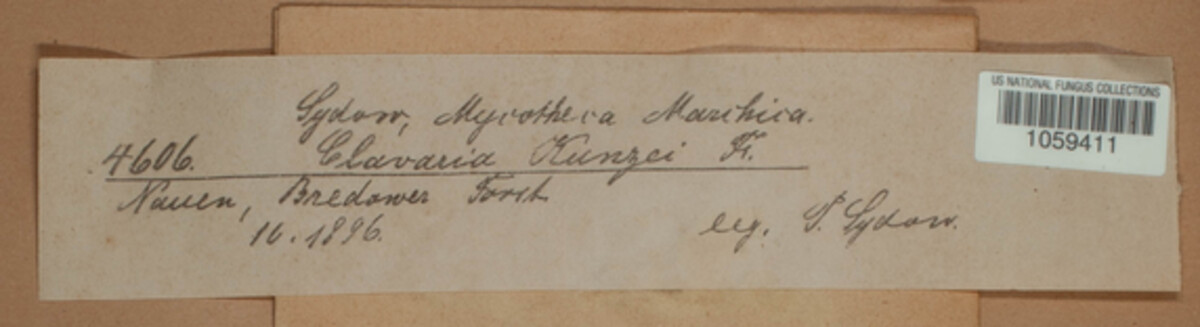 Sydow, Mycotheca Marchica.
4606. Clavaria Kunzei Fr.
Nauen, Bredower Forst
10. 1896.
leg. P. Sydow.
US NATIONAL FUNGUS COLLECTIONS
1059411